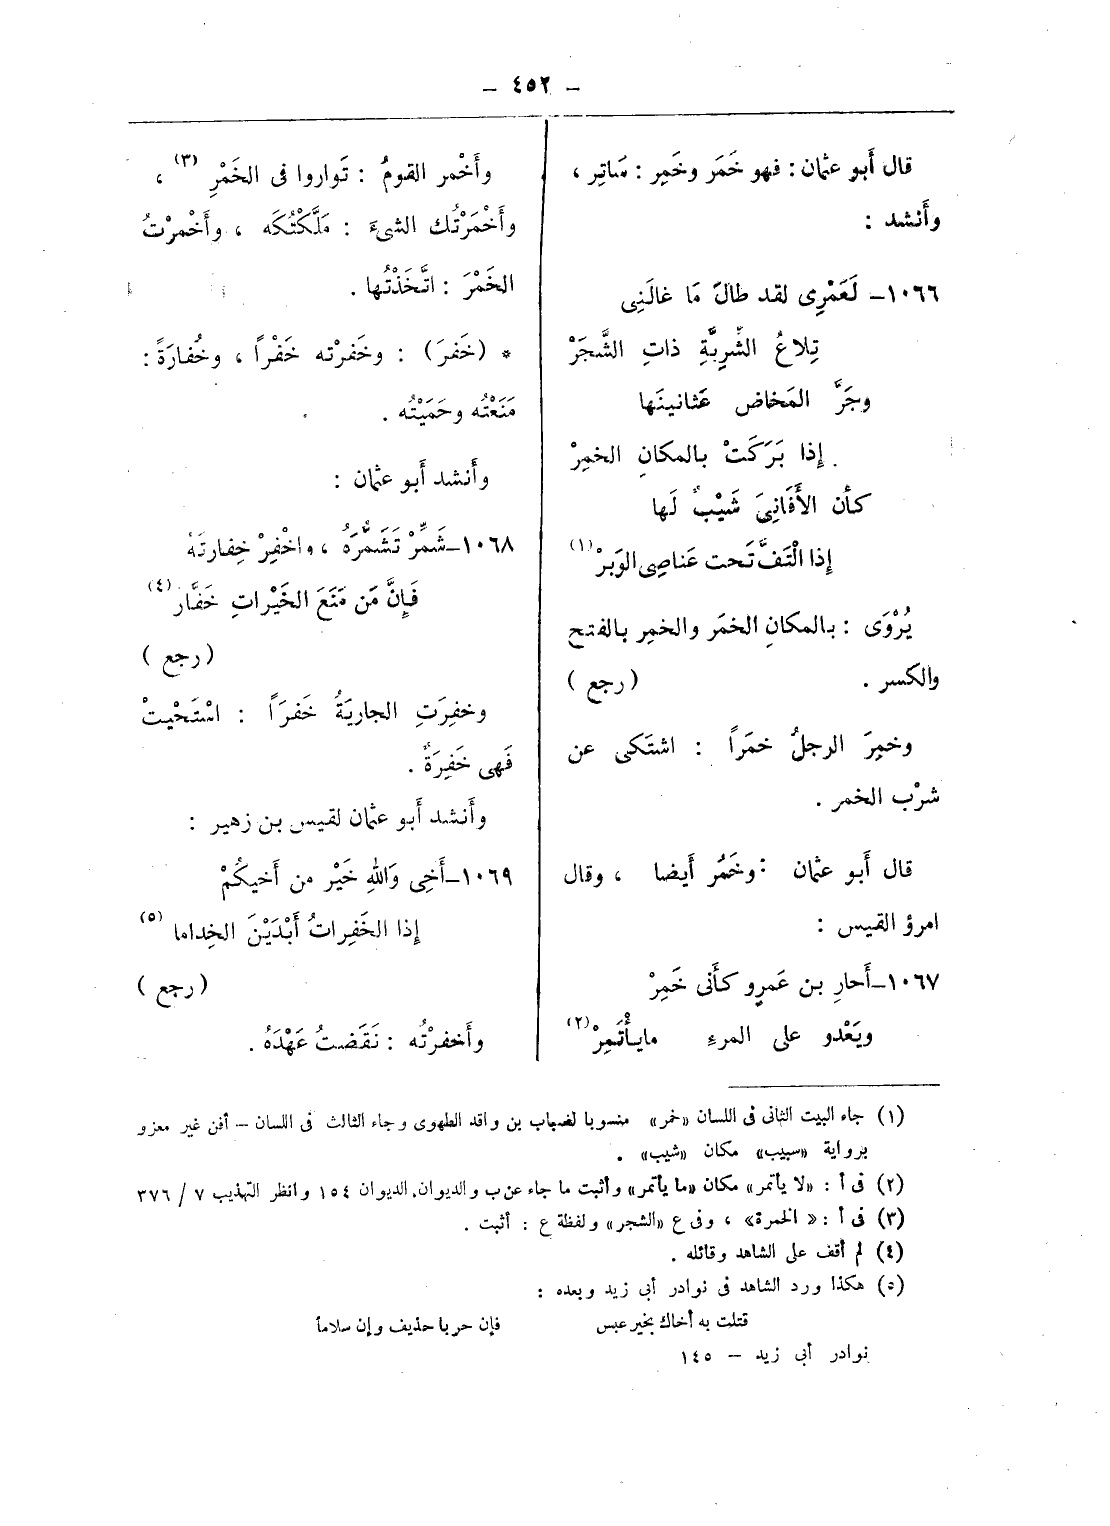 – ٤٥٢ –
قال أَبو عثمان : فهو خَمَر وخَمِر : سَاتِر ،
وأَنشد :
١٠٦٦– لَعَمْرِى لقد طالَ مَا غالَنِى
تِلاعُ الشَّرِبَّةِ ذاتِ الشَّجَرْ
وجَرَّ المَخاض عَثانينَها
إِذا بَرَكَتْ بالمكانِ الخمِرْ
كأن الأَفَانِىَ شَيْبٌ لَها
إِذا الْتَفَّ تَحت عَناصِى الوَبَرْ (١)
يُرْوَى : بالمكانِ الخمَر والخمِر بالفتح
والكسر . ( رجع )
وخمِرَ الرجلُ خمَراً : اشتَكى عن
شرْب الخمر .
قال أَبو عثمان : وخَمُر أَيضا ، وقال
امرؤ القيس :
١٠٦٧–أَحارِ بن عَمرٍو كأَنى خَمِرْ
ويَعْدو على المرءِ مايأْتَمِرْ (٢)
وأَخْمر القومُ : تَواروا فى الخَمْرِ (٣) ،
وأَخْمَرْتُك الشىءَ : مَلَّكْتُكَه ، وأَخْمرْتُ
الخَمْرَ : اتَّخَذْتُها .
* (خَفرَ) : وخَفرْته خَفْراً ، وخُفارَةً :
مَنَعْتُه وحَمَيْتُه .
وأَنشد أَبو عثمان :
١٠٦٨–شَمِّرْ تَشَمُّرَهُ ، واخْفِرْ خِفارتَهُ
فَإِنَّ مَن مَنَعَ الخَيْراتِ خَفَّار (٤)
( رجع )
وخفِرَتِ الجاريَةُ خَفرَاً : اسْتَحْيتْ
فَهى خَفِرَةٌ .
وأَنشد أَبو عثمان لقيس بن زهير :
١٠٦٩–أَخِى وَاللهِ خَيْر من أَخيكُمْ
إِذا الخَفِراتُ أَبْدَيْنَ الخِداما (٥)
( رجع )
وأَخفرْتُه : نَقَضتُ عَهْدَهُ .
(١) جاء البيت الثانى فى اللسان «خمر» منسوبا لضباب بن واقد الطهوى وجاء الثالث فى اللسان – أفن غير معزو
برواية «سبيب» مكان «شيب» .
(٢) فى أ : «لا يأتمر» مكان «ما يأتمر» وأثبت ما جاء عن ب والديوان. الديوان ١٥٤ وانظر التهذيب ٧ / ٣٧٦
(٣) فى أ : « الخمرة» ، وفى ع «الشجر» ولفظة ع : أثبت .
(٤) لم أقف على الشاهد وقائله .
(٥) هكذا ورد الشاهد فى نوادر أبى زيد وبعده :
قتلت به أخاك بخير عبس فإن حربا حذيف وإن سلاما
نوادر أبى زيد – ١٤٥